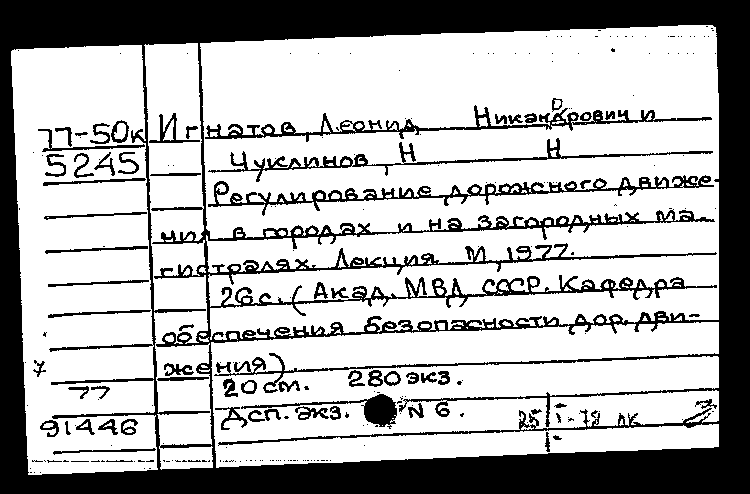 77-50к Игнатов, Леонид Никандрович и
5245 Чуклинов, Н Н
Регулирование дорожного движе-
ния в городах и на загородных ма-
гистралях. Лекция. М, 1977.
26 с. (Акад. МВД СССР. Кафедра
обеспечения безопасности дор. дви-
7 жения)
77 20 см. 280 экз.
91446 Дсп. экз. N 6. 25/I-78 лк